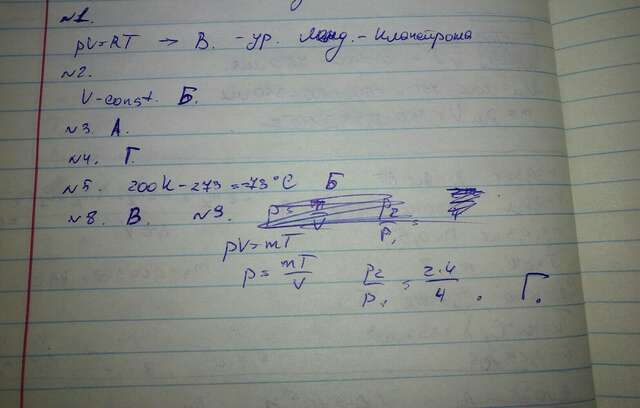 №1.
pV=RT → В. - ур. Менд. - Клапейрона
№2.
V-const. Б.
№3 А.
№4. Г.
№5. 200К-273=-73°С Б
№8. В. №9.
pV=mT
p=mT/V p2/p1=2·4/4. Г.